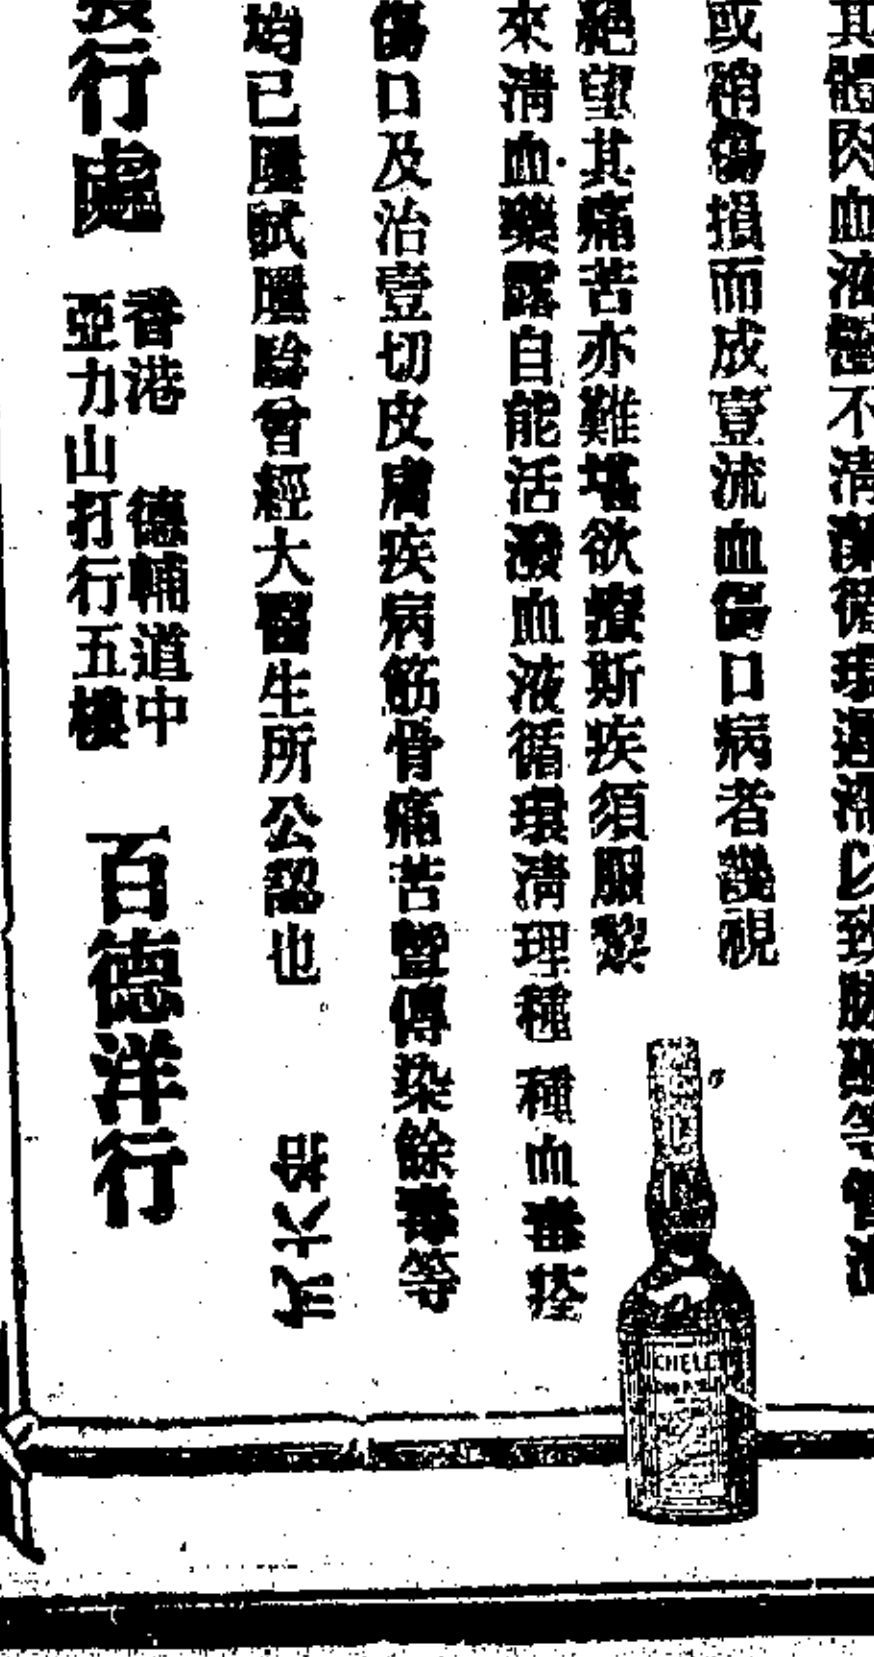 其體肉血液壅不清潔循環遲滯以致
或稍傷損而成壹流血傷口病者譏視
絕望其痛苦亦難堪欲撩斯疾須服黎
來清血藥露自能活潑血液循環清理種種血毒痊
傷口及治壹切皮膚疾病筋骨痛苦暨傳染餘毒等
均已屢試屢驗曾經大醫生所公認也
發行處
香港 德輔道中
亞力山打行五樓
百德洋行